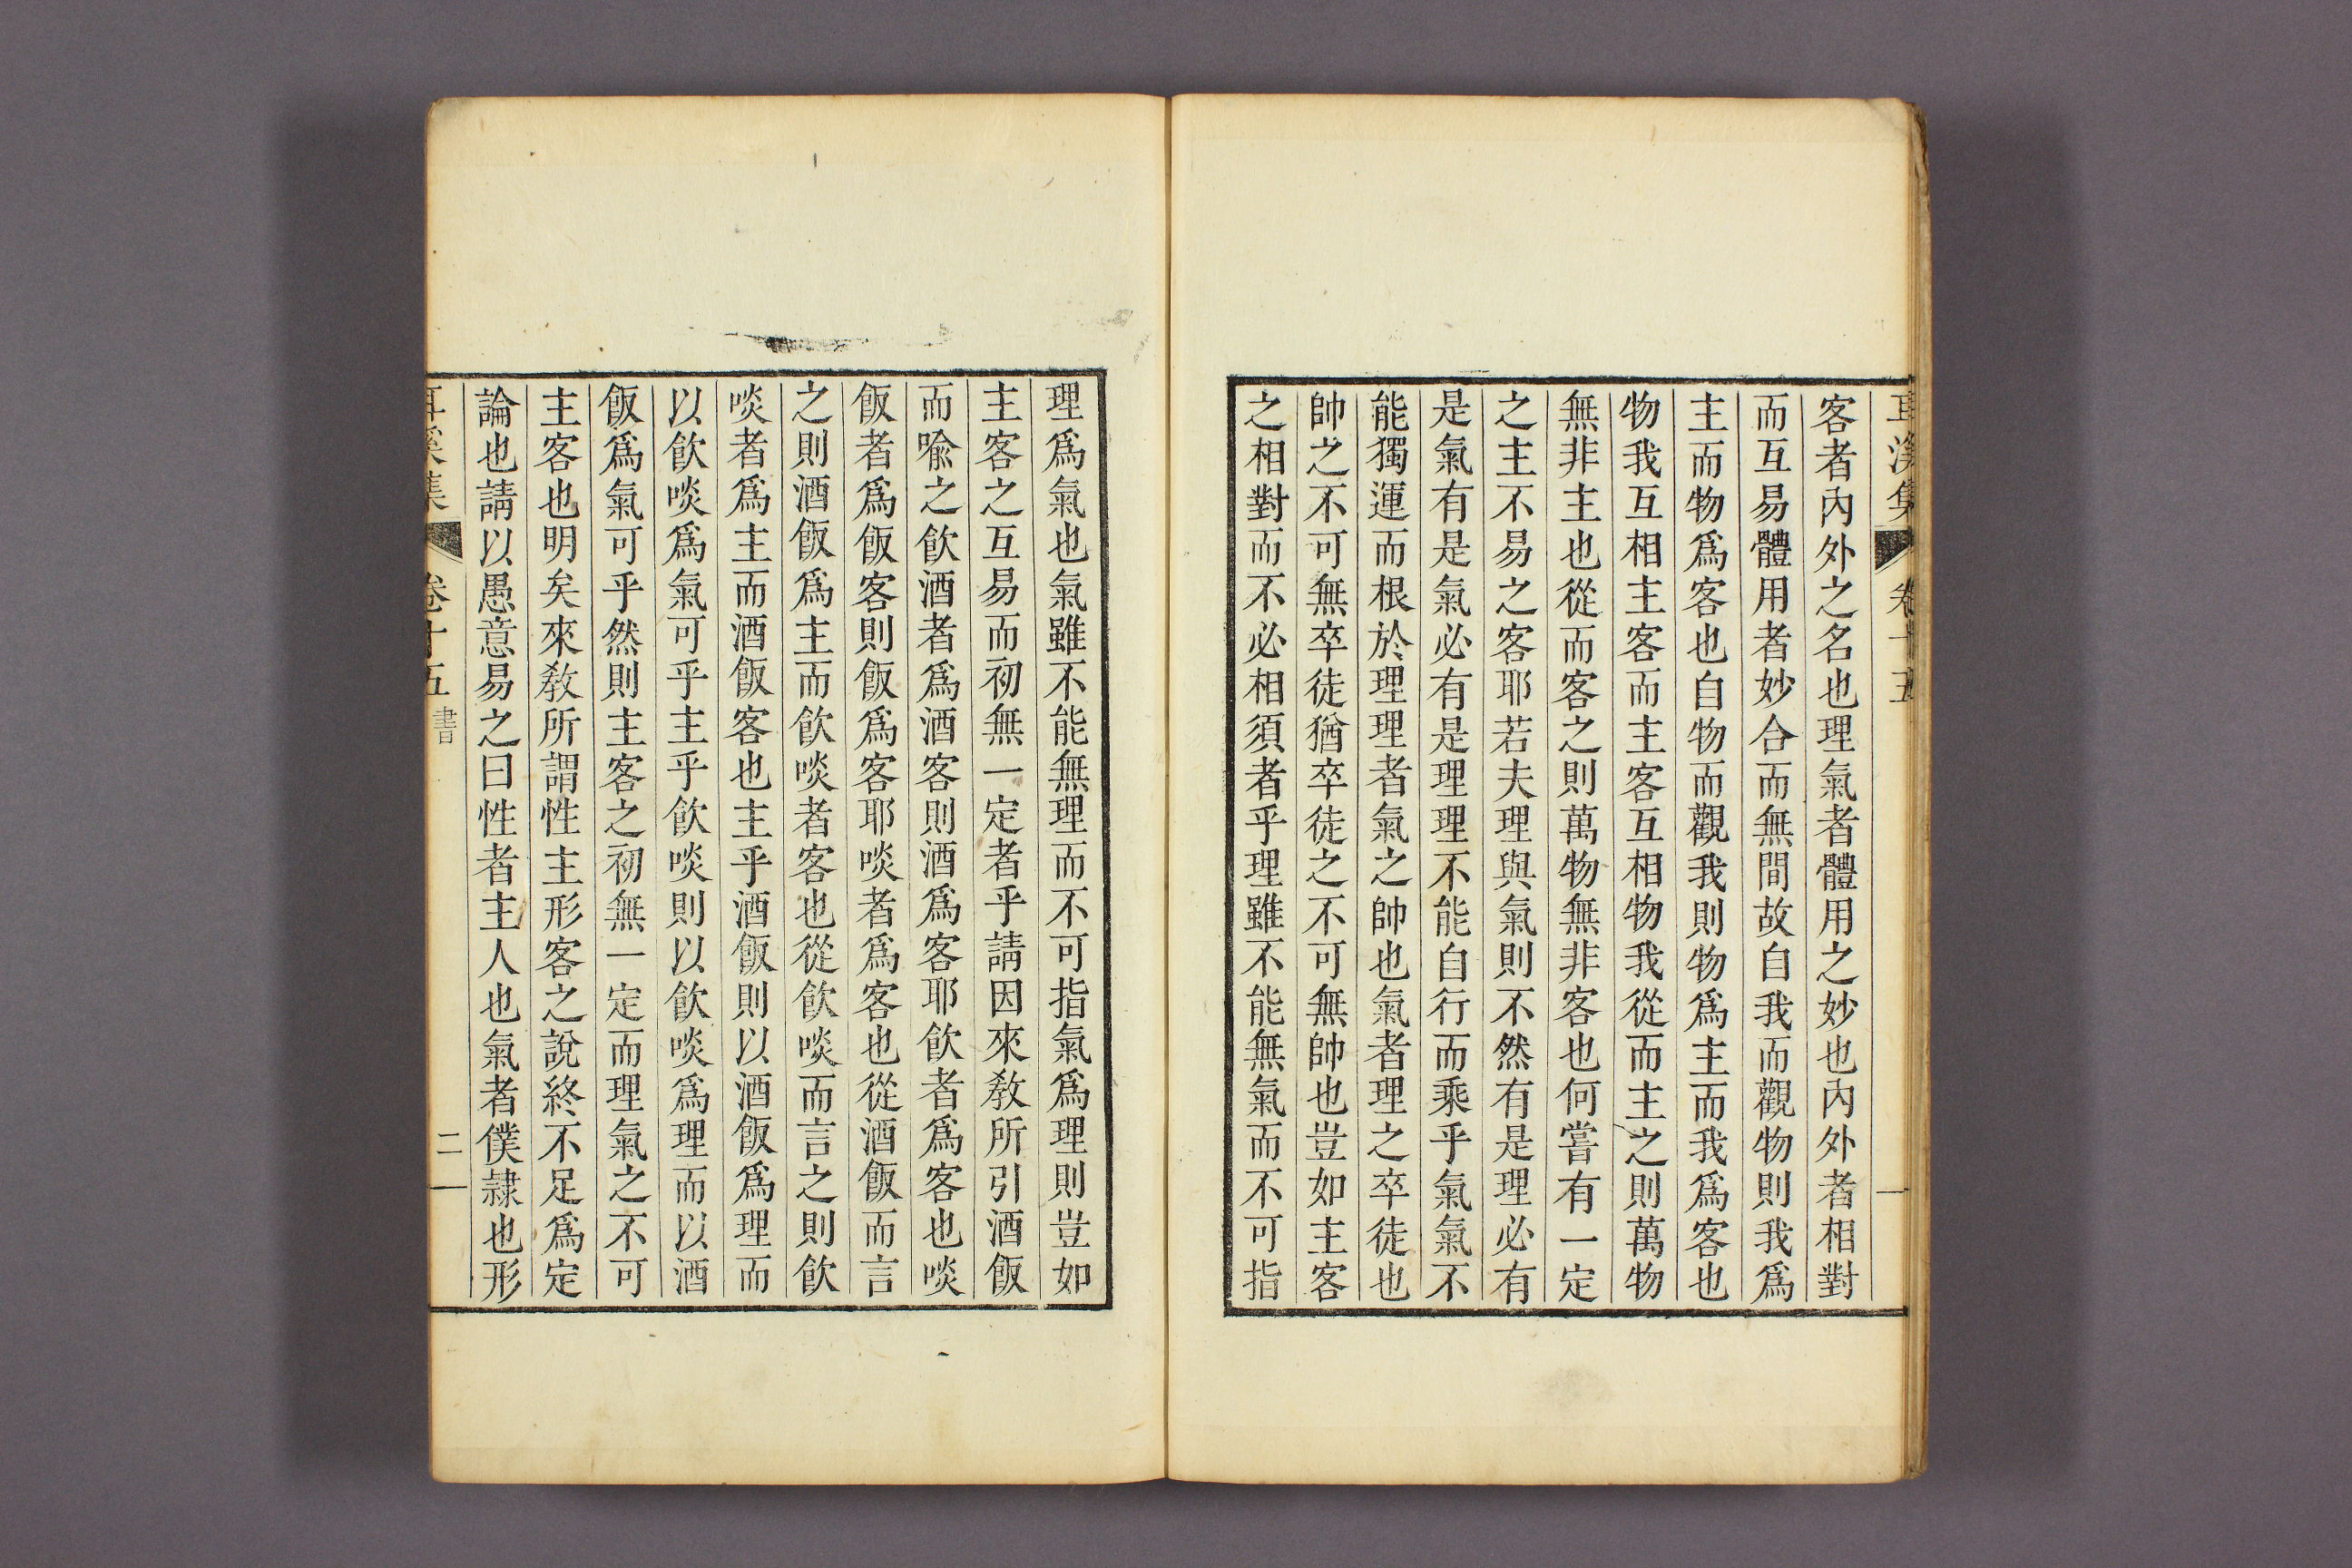 客者內外之名也理氣者體用之妙也內外者相對
而互易體用者妙合而無間故自我而觀物則我爲
主而物爲客也自物而觀我則物爲主而我爲客也
物我互相主客而主客互相物我從而主之則萬物
無非主也從而客之則萬物無非客也何嘗有一定
之主不易之客耶若夫理與氣則不然有是理必有
是氣有是氣必有是理理不能自行而乘乎氣氣不
能獨運而根於理理者氣之帥也氣者理之卒徒也
帥之不可無卒徒猶卒徒之不可無帥也豈如主客
之相對而不必相須者乎理雖不能無氣而不可指
理爲氣也氣雖不能無理而不可指氣爲理則豈如
主客之互易而初無一定者乎請因來敎所引酒飯
而喩之飮酒者爲酒客則酒爲客耶飮者爲客也啖
飯者爲飯客則飯爲客耶啖者爲客也從酒飯而言
之則酒飯爲主而飮啖者客也從飮啖而言之則飮
啖者爲主而酒飯客也主乎酒飯則以酒飯爲理而
以飮啖爲氣可乎主乎飮啖則以飮啖爲理而以酒
飯爲氣可乎然則主客之初無一定而理氣之不可
主客也明矣來敎所謂性主形客之說終不足爲定
論也請以愚意易之曰性者主人也氣者僕隷也形
耳溪集 卷十五 書 二